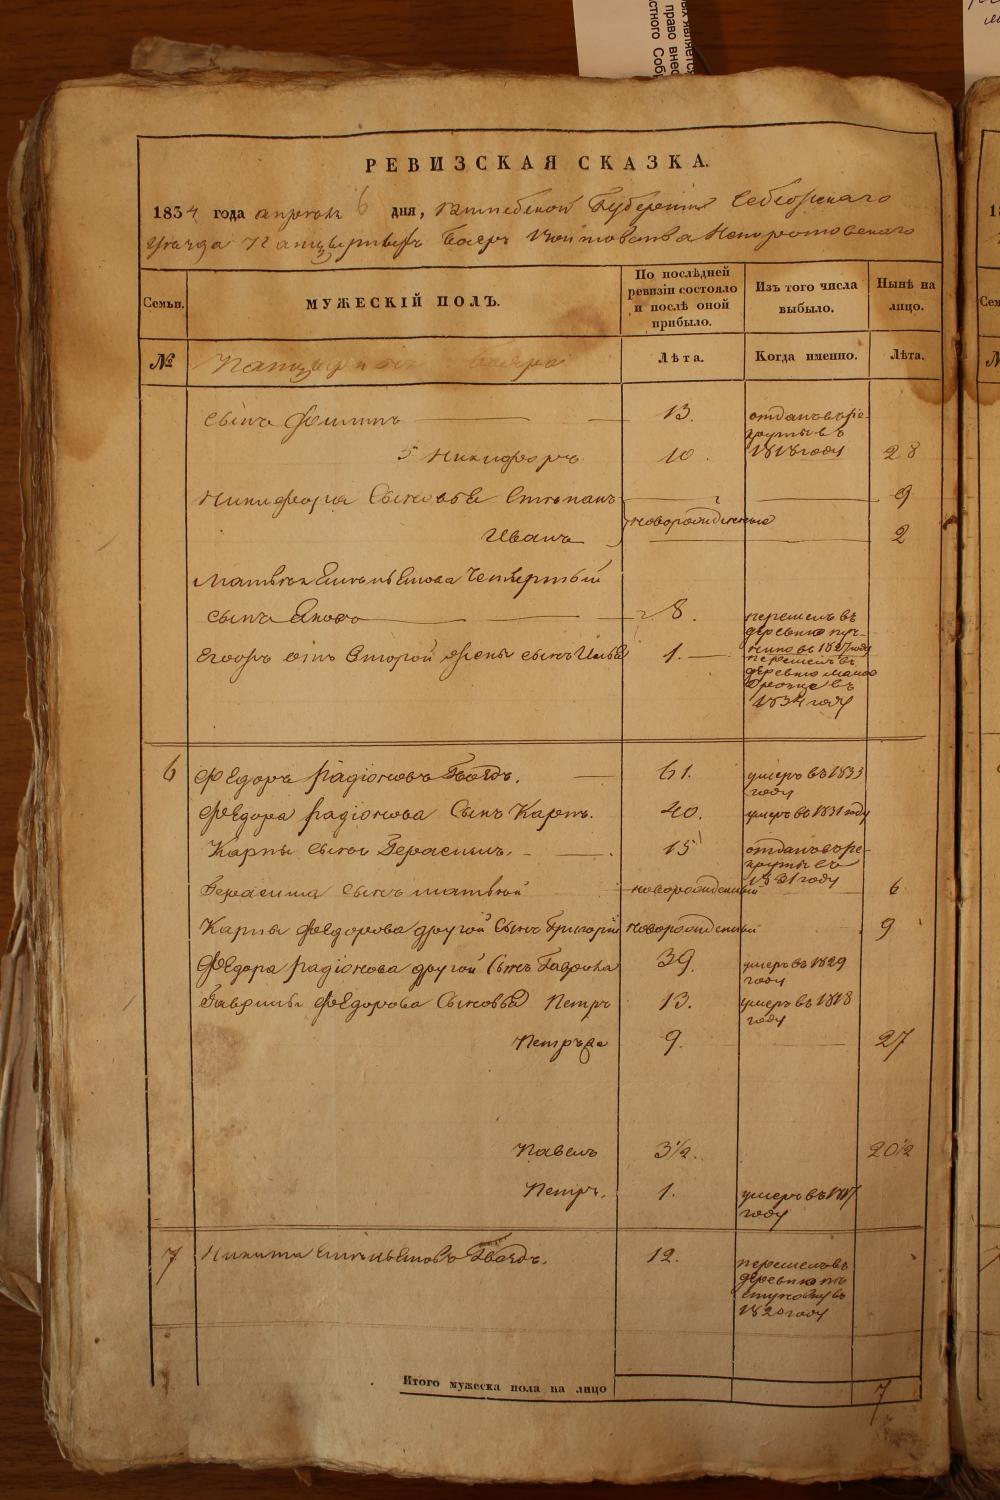 РЕВИЗСКАЯ СКАЗКА.
1834 года апреля 6 дня, Витебской Губернии Себежского
уезда Панцырныхъ Бояръ Войтовства Непоротовского
Семьи.
МУЖЕСКІЙ ПОЛЪ.
По послѣдней
ревизіи состояло
и послѣ оной
прибыло.
Изъ того числа
выбыло.
Нынѣ на
лицо.
№
Панцырные бояра
Лѣта.
Когда именно.
Лѣта.
сынъ Филипъ 13. отданъ въ ре-
круты въ
1818 году
Никифоръ 10. 28
Никифора Сыновья Степанъ 9
новорожденные
Иванъ 2
Матвея Емельянова Четвертый
сынъ Яковъ 8. перешелъ въ
деревню
въ 1827 году
Егооръ отъ Второй жены сынъ Илья 1. перешелъ въ
деревню
въ
1834 году
6 Федоръ Радіоновъ Гвоздь. 61. умеръ въ 1833
году
Федора Радіонова Сынъ Карпъ. 40. умеръ въ 1831 году
Карпы сынъ Герасимъ. 15 отданъ въ ре-
круты въ
1831 году
Герасима сынъ Матвей новорожденный 6
Карпы Федорова другой Сынъ Григорій новорожденный 9
Федора Радіонова другой Сынъ Гаврила 39. умеръ въ 1829
году
Гаврилы Федорова Сыновья Петръ 13. умеръ въ 1818
году
9. 27
Павелъ 3½. 20½
Петръ. 1. умеръ въ 1817
году
7 Никита Емельяновъ Гвоздь. 12. перешелъ въ
деревню
въ
1820 году
Итого мужеска пола на лицо 7